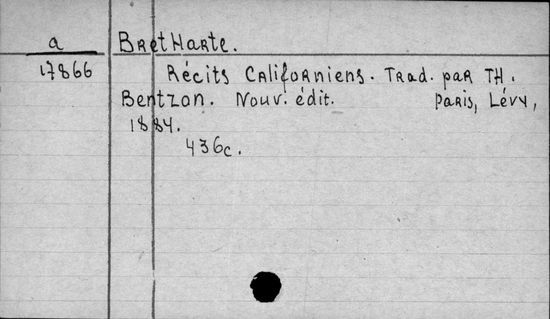 a BretHarte.
17866 Récits Californiens. Trad. par Th.
Bentzon. Nouv. édit. Paris, Lévy,
1884.
436c.